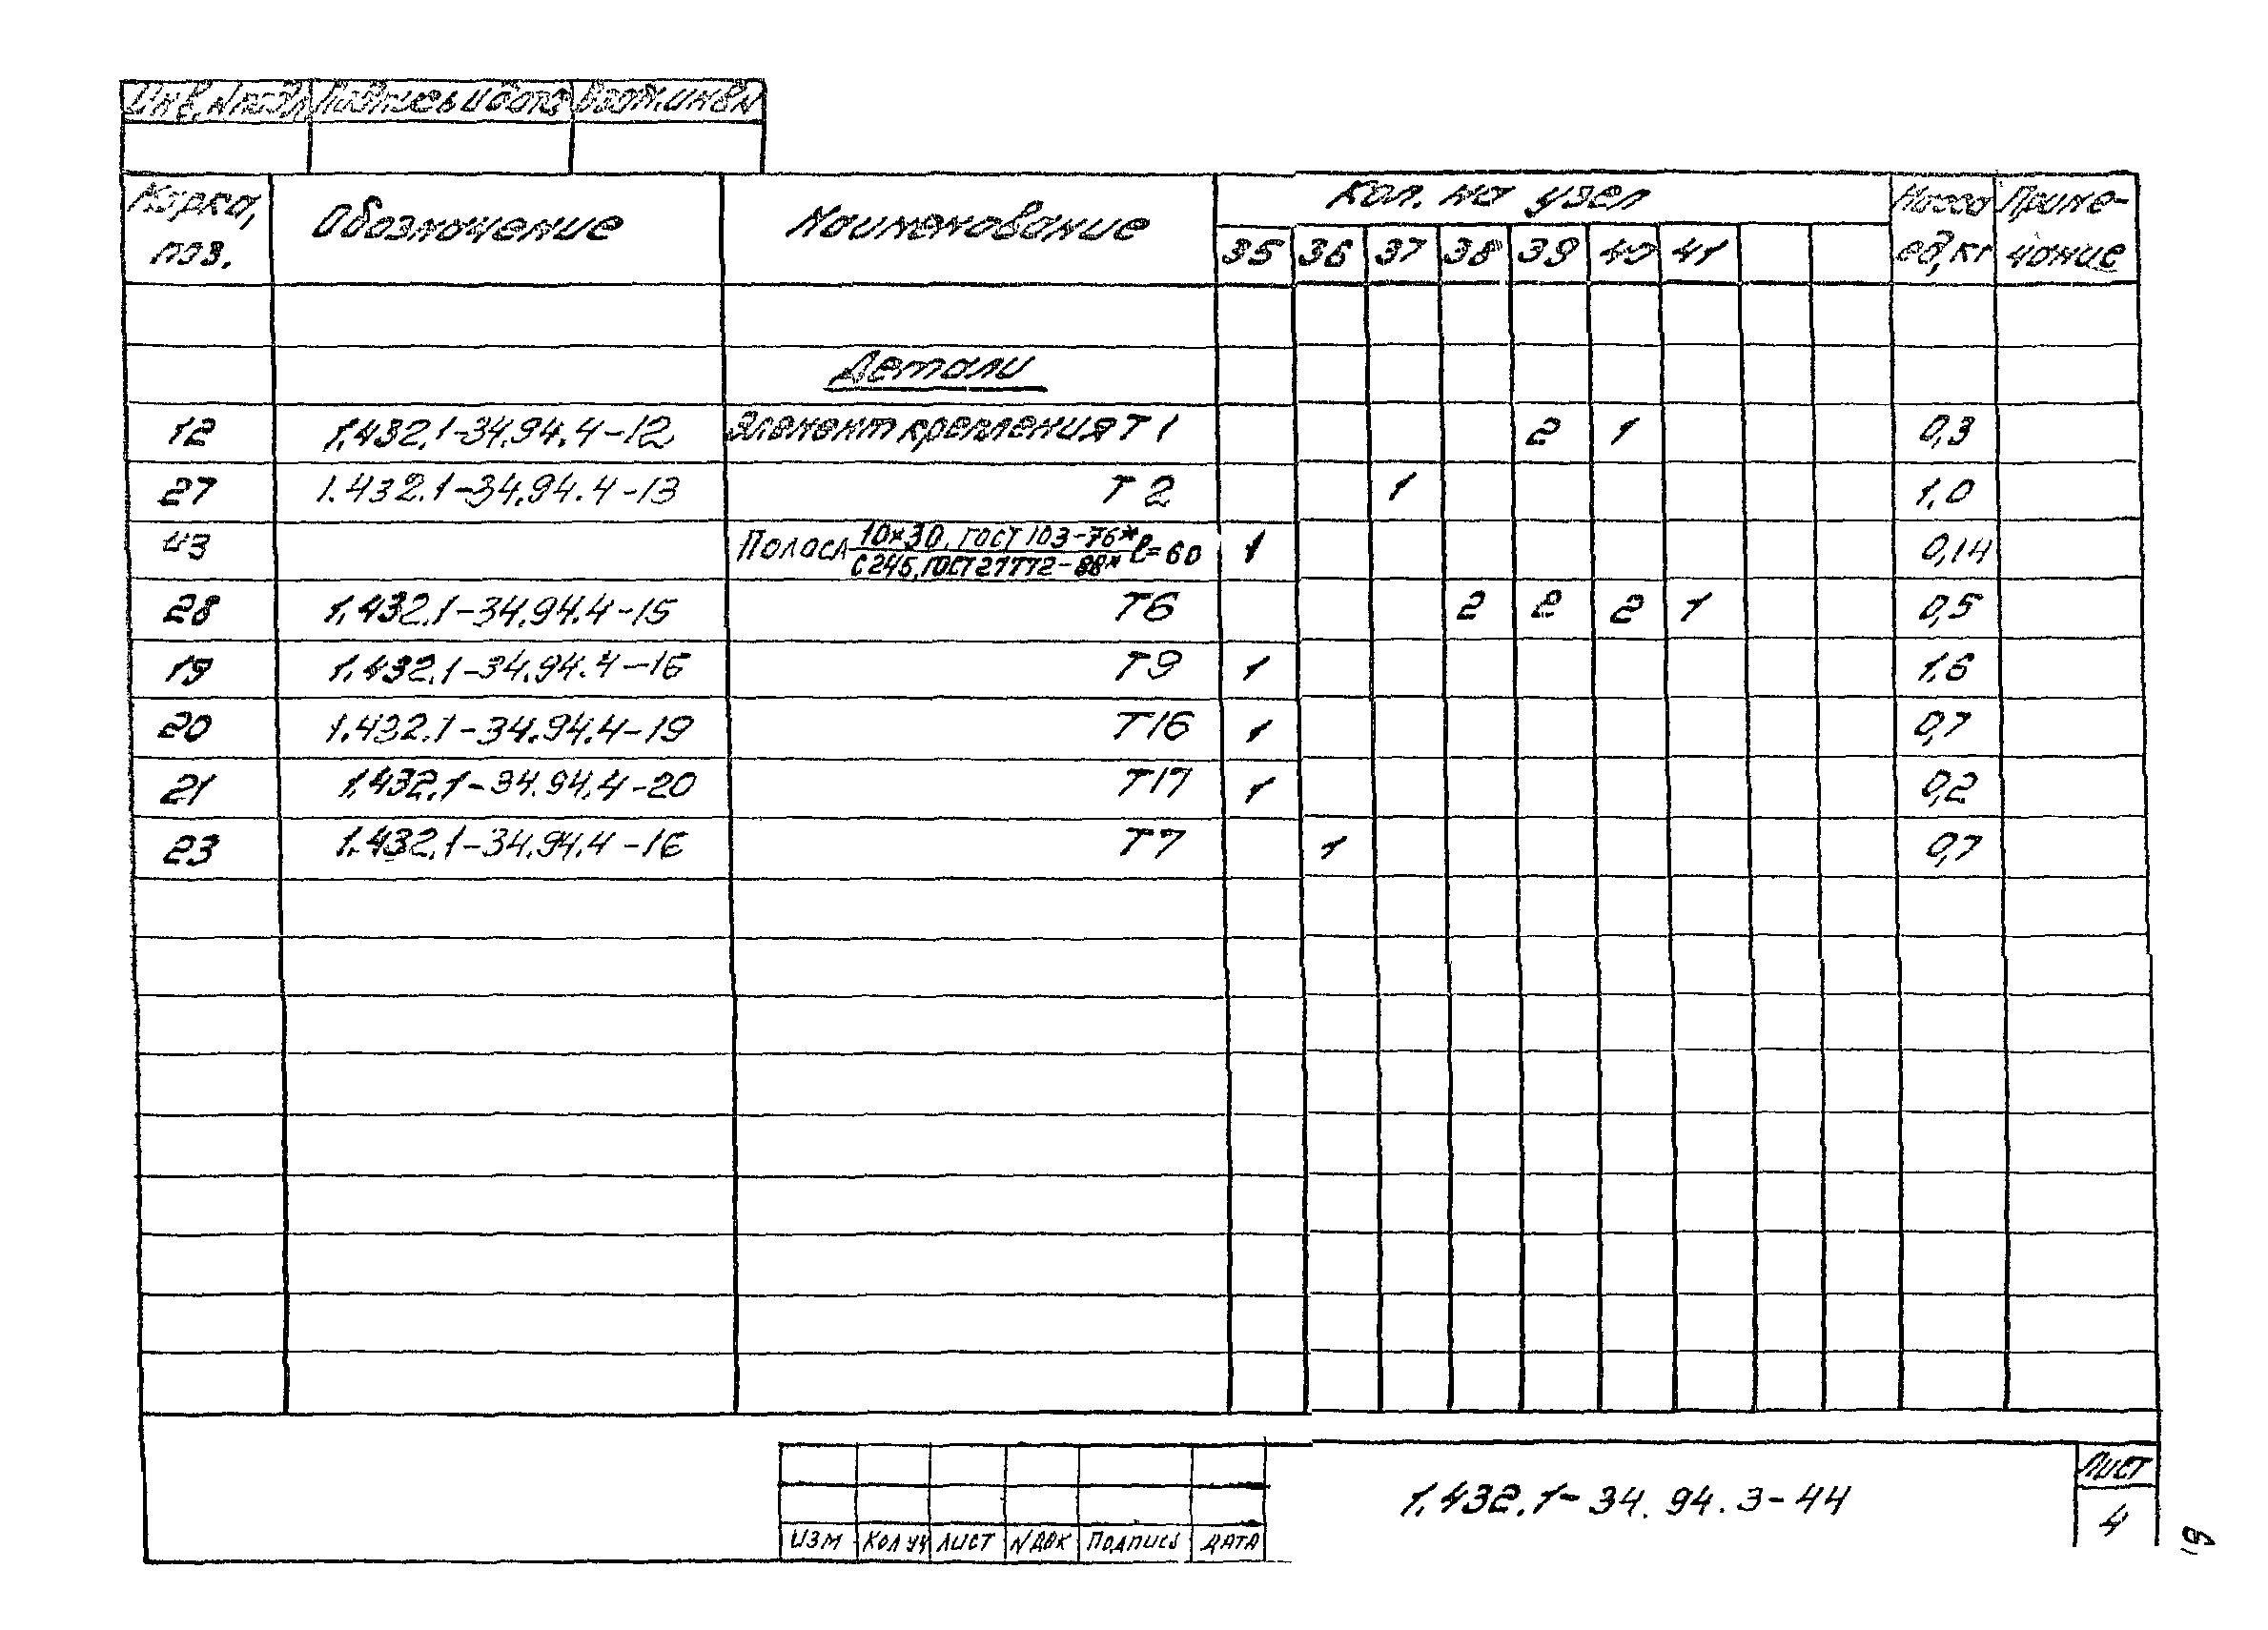 Инв. № подл Подпись и дата Взам. инв №
Марка, поз. Обозначение Наименование Кол. на узел Масса ед, кг Приме-чание
35 36 37 38 39 40 41
Детали
12 1.432.1-34.94.4-12 Элемент крепления Т1 2 1 0,3
27 1.432.1-34.94.4-13 Т2 1 1,0
43 Полоса 10×30, ГОСТ 103-76* / С245, ГОСТ 27772-88* ℓ=60 1 0,14
28 1.432.1-34.94.4-15 Т6 2 2 2 1 0,5
19 1.432.1-34.94.4-16 Т9 1 1,6
20 1.432.1-34.94.4-19 Т16 1 0,7
21 1.432.1-34.94.4-20 Т17 1 0,2
23 1.432.1-34.94.4-16 Т7 1 0,7
1.432.1-34.94.3-44
Лист
4
ИЗМ КОЛ УЧ ЛИСТ № ДОК ПОДПИСЬ ДАТА
19